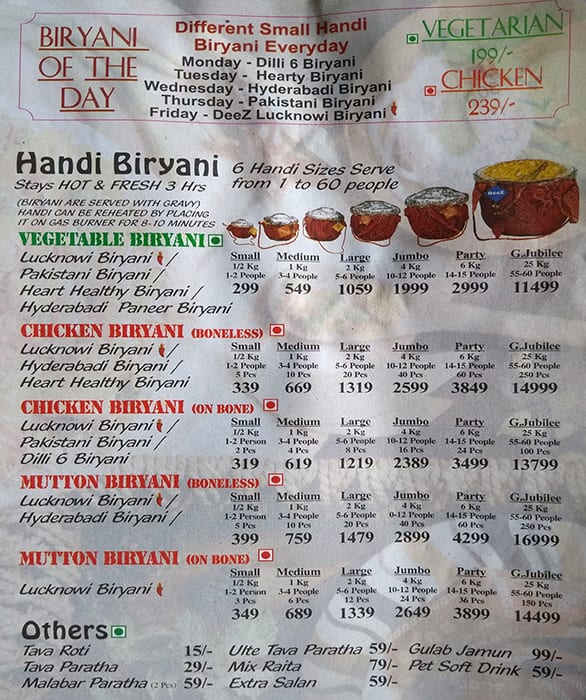 BIRYANI
OF THE
DAY
Different Small Handi
Biryani Everyday
Monday - Dilli 6 Biryani
Tuesday - Hearty Biryani
Wednesday - Hyderabadi Biryani
Thursday - Pakistani Biryani
Friday - DeeZ Lucknowi Biryani
VEGETARIAN
199/-
CHICKEN
239/-
Handi Biryani
Stays HOT & FRESH 3 Hrs
6 Handi Sizes Serve
from 1 to 60 people
(BIRYANI ARE SERVED WITH GRAVY)
HANDI CAN BE REHEATED BY PLACING
IT ON GAS BURNER FOR 8-10 MINUTES
DeeZ
VEGETABLE BIRYANI
Lucknowi Biryani /
Pakistani Biryani /
Heart Healthy Biryani /
Hyderabadi Paneer Biryani
Small Medium Large Jumbo Party G.Jubilee
1/2 Kg 1 Kg 2 Kg 4 Kg 6 Kg 25 Kg
1-2 People 3-4 People 5-6 People 10-12 People 14-15 People 55-60 People
299 549 1059 1999 2999 11499
CHICKEN BIRYANI (BONELESS)
Lucknowi Biryani /
Hyderabadi Biryani /
Heart Healthy Biryani
Small Medium Large Jumbo Party G.Jubilee
1/2 Kg 1 Kg 2 Kg 4 Kg 6 Kg 25 Kg
1-2 People 3-4 People 5-6 People 10-12 People 14-15 People 55-60 People
5 Pcs 10 Pcs 20 Pcs 40 Pcs 60 Pcs 250 Pcs
339 669 1319 2599 3849 14999
CHICKEN BIRYANI (ON BONE)
Lucknowi Biryani /
Pakistani Biryani /
Dilli 6 Biryani
Small Medium Large Jumbo Party G.Jubilee
1/2 Kg 1 Kg 2 Kg 4 Kg 6 Kg 25 Kg
1-2 Person 3-4 People 5-6 People 10-12 People 14-15 People 55-60 People
2 Pcs 4 Pcs 8 Pcs 16 Pcs 24 Pcs 100 Pcs
319 619 1219 2389 3499 13799
MUTTON BIRYANI (BONELESS)
Lucknowi Biryani /
Hyderabadi Biryani /
Small Medium Large Jumbo Party G.Jubilee
1/2 Kg 1 Kg 2 Kg 4 Kg 6 Kg 25 Kg
1-2 Person 3-4 People 5-6 People 0-12 People 14-15 People 55-60 People
5 Pcs 10 Pcs 20 Pcs 40 Pcs 60 Pcs 250 Pcs
399 759 1479 2899 4299 16999
MUTTON BIRYANI (ON BONE)
Lucknowi Biryani
Small Medium Large Jumbo Party G.Jubilee
1/2 Kg 1 Kg 2 Kg 4 Kg 6 Kg 25 Kg
1-2 Person 3-4 People 5-6 People 10-12 People 14-15 People 55-60 People
3 Pcs 6 Pcs 12 Pcs 24 Pcs 36 Pcs 150 Pcs
349 689 1339 2649 3899 14499
Others
Tava Roti 15/-
Tava Paratha 29/-
Malabar Paratha (2 Pcs) 59/-
Ulte Tava Paratha 59/-
Mix Raita 79/-
Extra Salan 59/-
Gulab Jamun 99/-
Pet Soft Drink 59/-